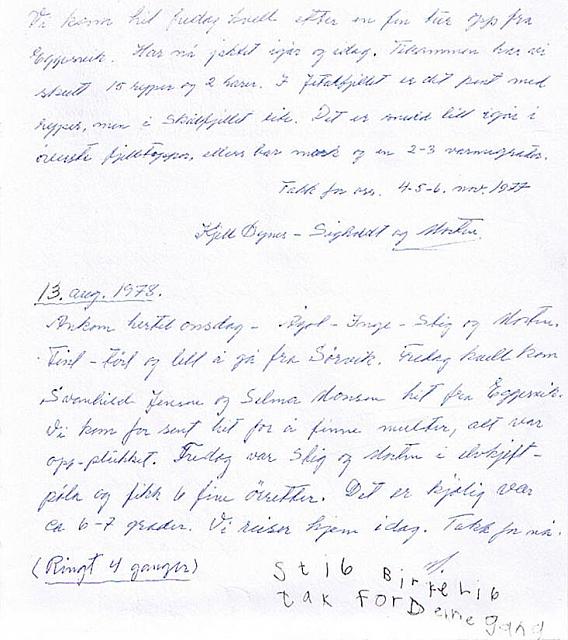 Vi kom hit fredag kveld efter en fin tur opp fra
Eggesvik. Har nå jaktet igår og idag. Tilsammen har vi
skutt 15 ryper og 2 harer. I er det pent med
ryper, men i Skålfjellet ikke. Det er snødd litt igår i
øverste fjelltopper, ellers bar mark og en 2-3 varmegrader.
Takk for oss. 4-5-6. nov. 1977
Kjell - og Morten.
13. aug. 1978.
Ankom hertil onsdag - - Inge - Stig og Morten.
Fint - tørt og lett å gå fra Sørvik. Fredag kveld kom
Svanhild Jensen og Selma Monsen hit fra Eggesvik.
Vi kom for sent hit for å finne multer, alt var
opp-plukket. Fredag var Stig og Morten i
og fikk 6 fine ørretter. Det er kjølig vær
ca 6-7 grader. Vi reiser hjem idag. Takk for nå.
(Ringt 4 ganger)
Stig
tak For Denne gang